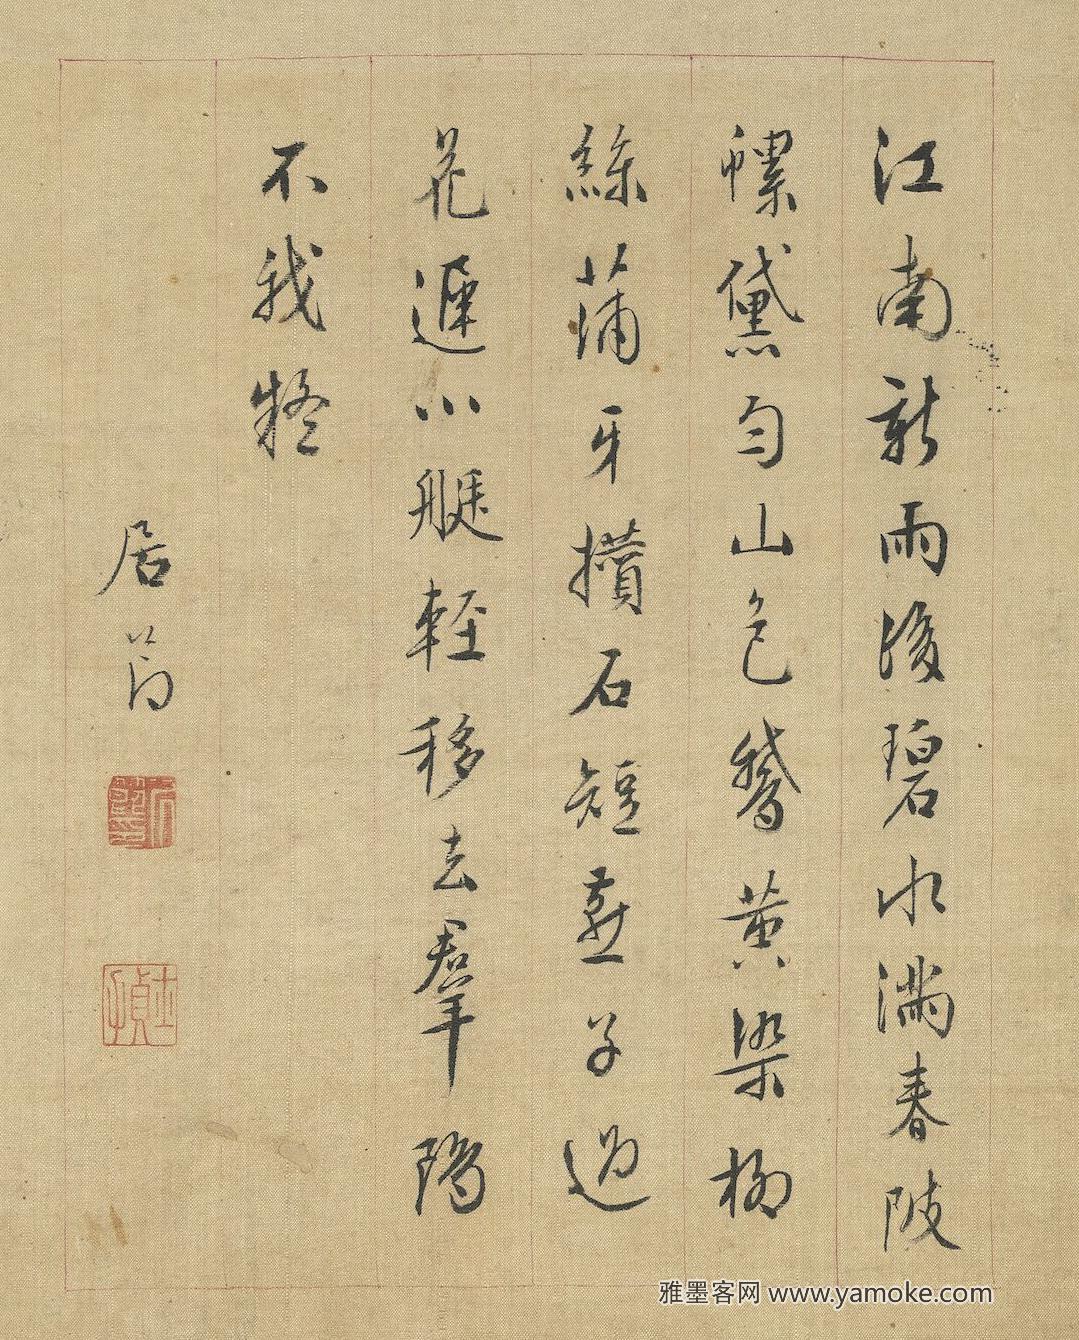 江南新雨後碧水滿春陂
螺黛匀山色鵞黄染柳
絲蒲牙攢石短燕子過
花遲小艇輕移去羣鷗
不我疑
居節
雅墨客网 www.yamoke.com